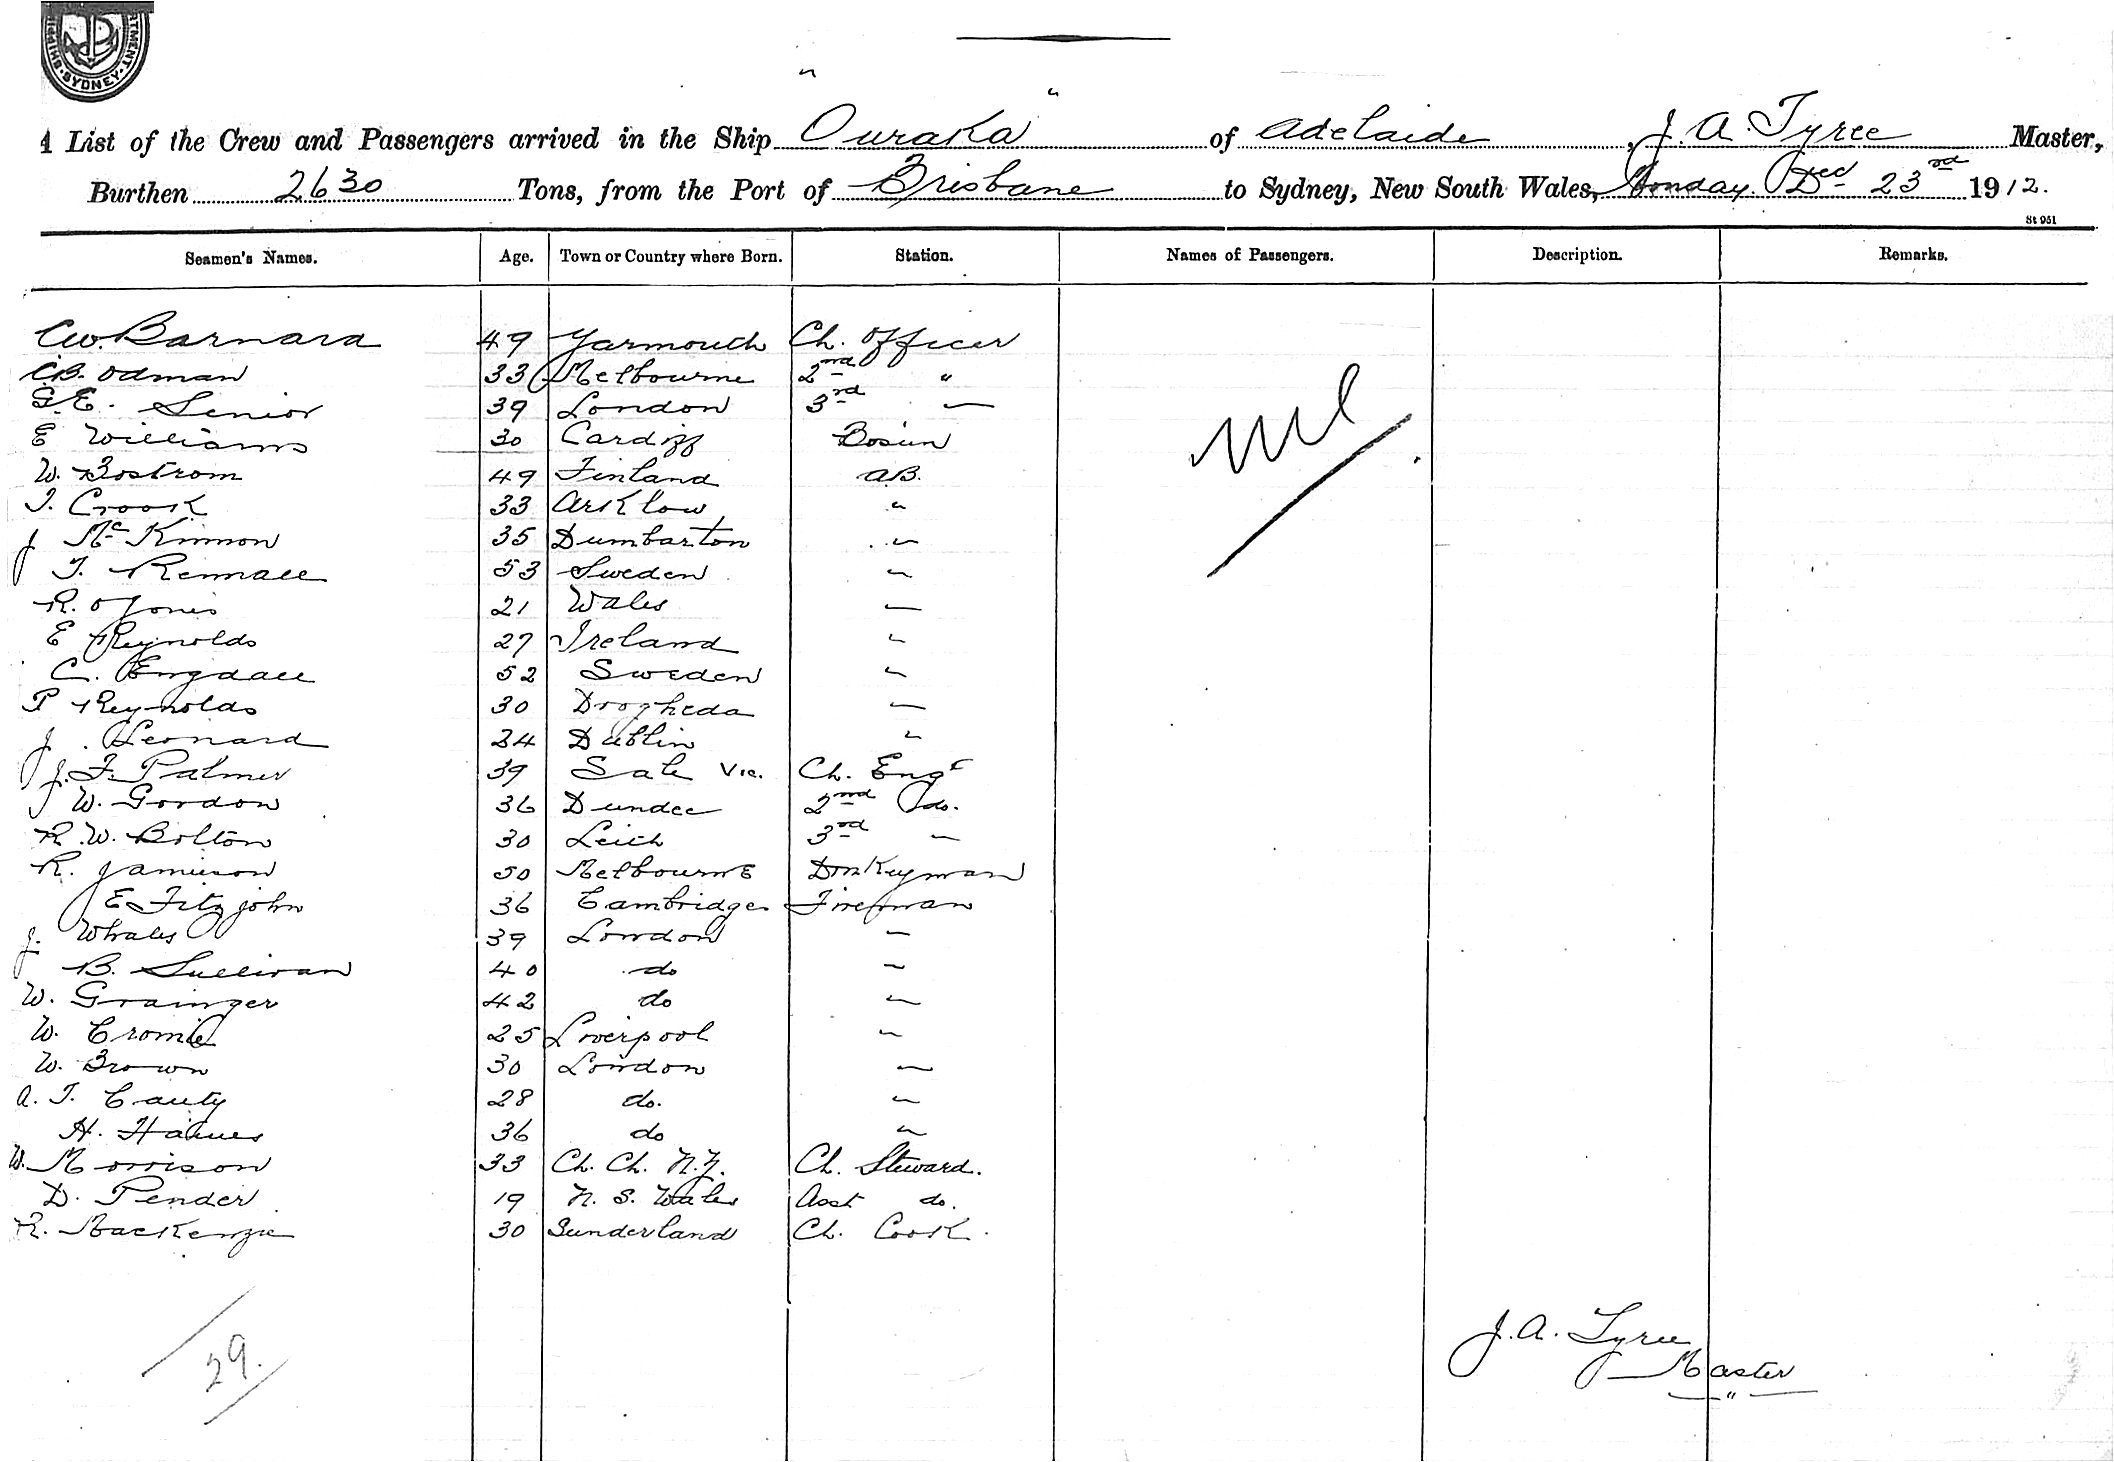 SHIPPING DEPARTMENT SYDNEY
A List of the Crew and Passengers arrived in the Ship "Ouraka" of Adelaide, J. A. Tyree Master,
Burthen 2630 Tons, from the Port of Brisbane to Sydney, New South Wales, Monday Dec 23rd 1912.
St 951
Seamen's Names. Age. Town or Country where Born. Station. Names of Passengers. Description. Remarks.
C.W. Barnard 49 Yarmouth Ch. Officer
C.B. Odman 33 Melbourne 2nd "
G.E. Senior 39 London 3rd "
E Williams 30 Cardiff Bosun
Nil
W. Bostrom 49 Finland A.B.
T. Crook 33 Arklow "
J McKinnon 35 Dumbarton "
T. Rennall 53 Sweden "
R. O Jones 21 Wales "
E Reynolds 27 Ireland "
C. Engdall 52 Sweden "
P Reynolds 30 Drogheda "
J. Leonard 24 Dublin "
J. F. Palmer 39 Sale Vic. Ch. Engr
W. Gordon 36 Dundee 2nd do.
R.W. Bolton 30 Leith 3rd "
R. Jamieson 50 Melbourne Donkeyman
E Fitzjohn 36 Cambridge Fireman
J. Whales 39 London "
B. Sullivan 40 do "
W. Grainger 42 do "
W. Cromie 25 Liverpool "
W. Brown 30 London "
A. T. Cauty 28 do. "
H. Haines 36 do "
W. Morrison 33 Ch. Ch. N.Z. Ch. Steward.
D. Pender 19 N. S. Wales Asst do.
R. Mackenzie 30 Sunderland Ch. Cook.
29.
J. A. Tyree
Master